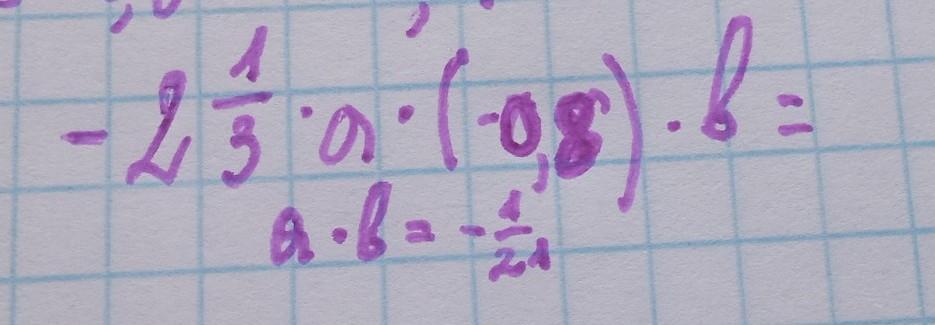 -2 1/3 · a · (-0,8) · b =
a · b = - 1/21